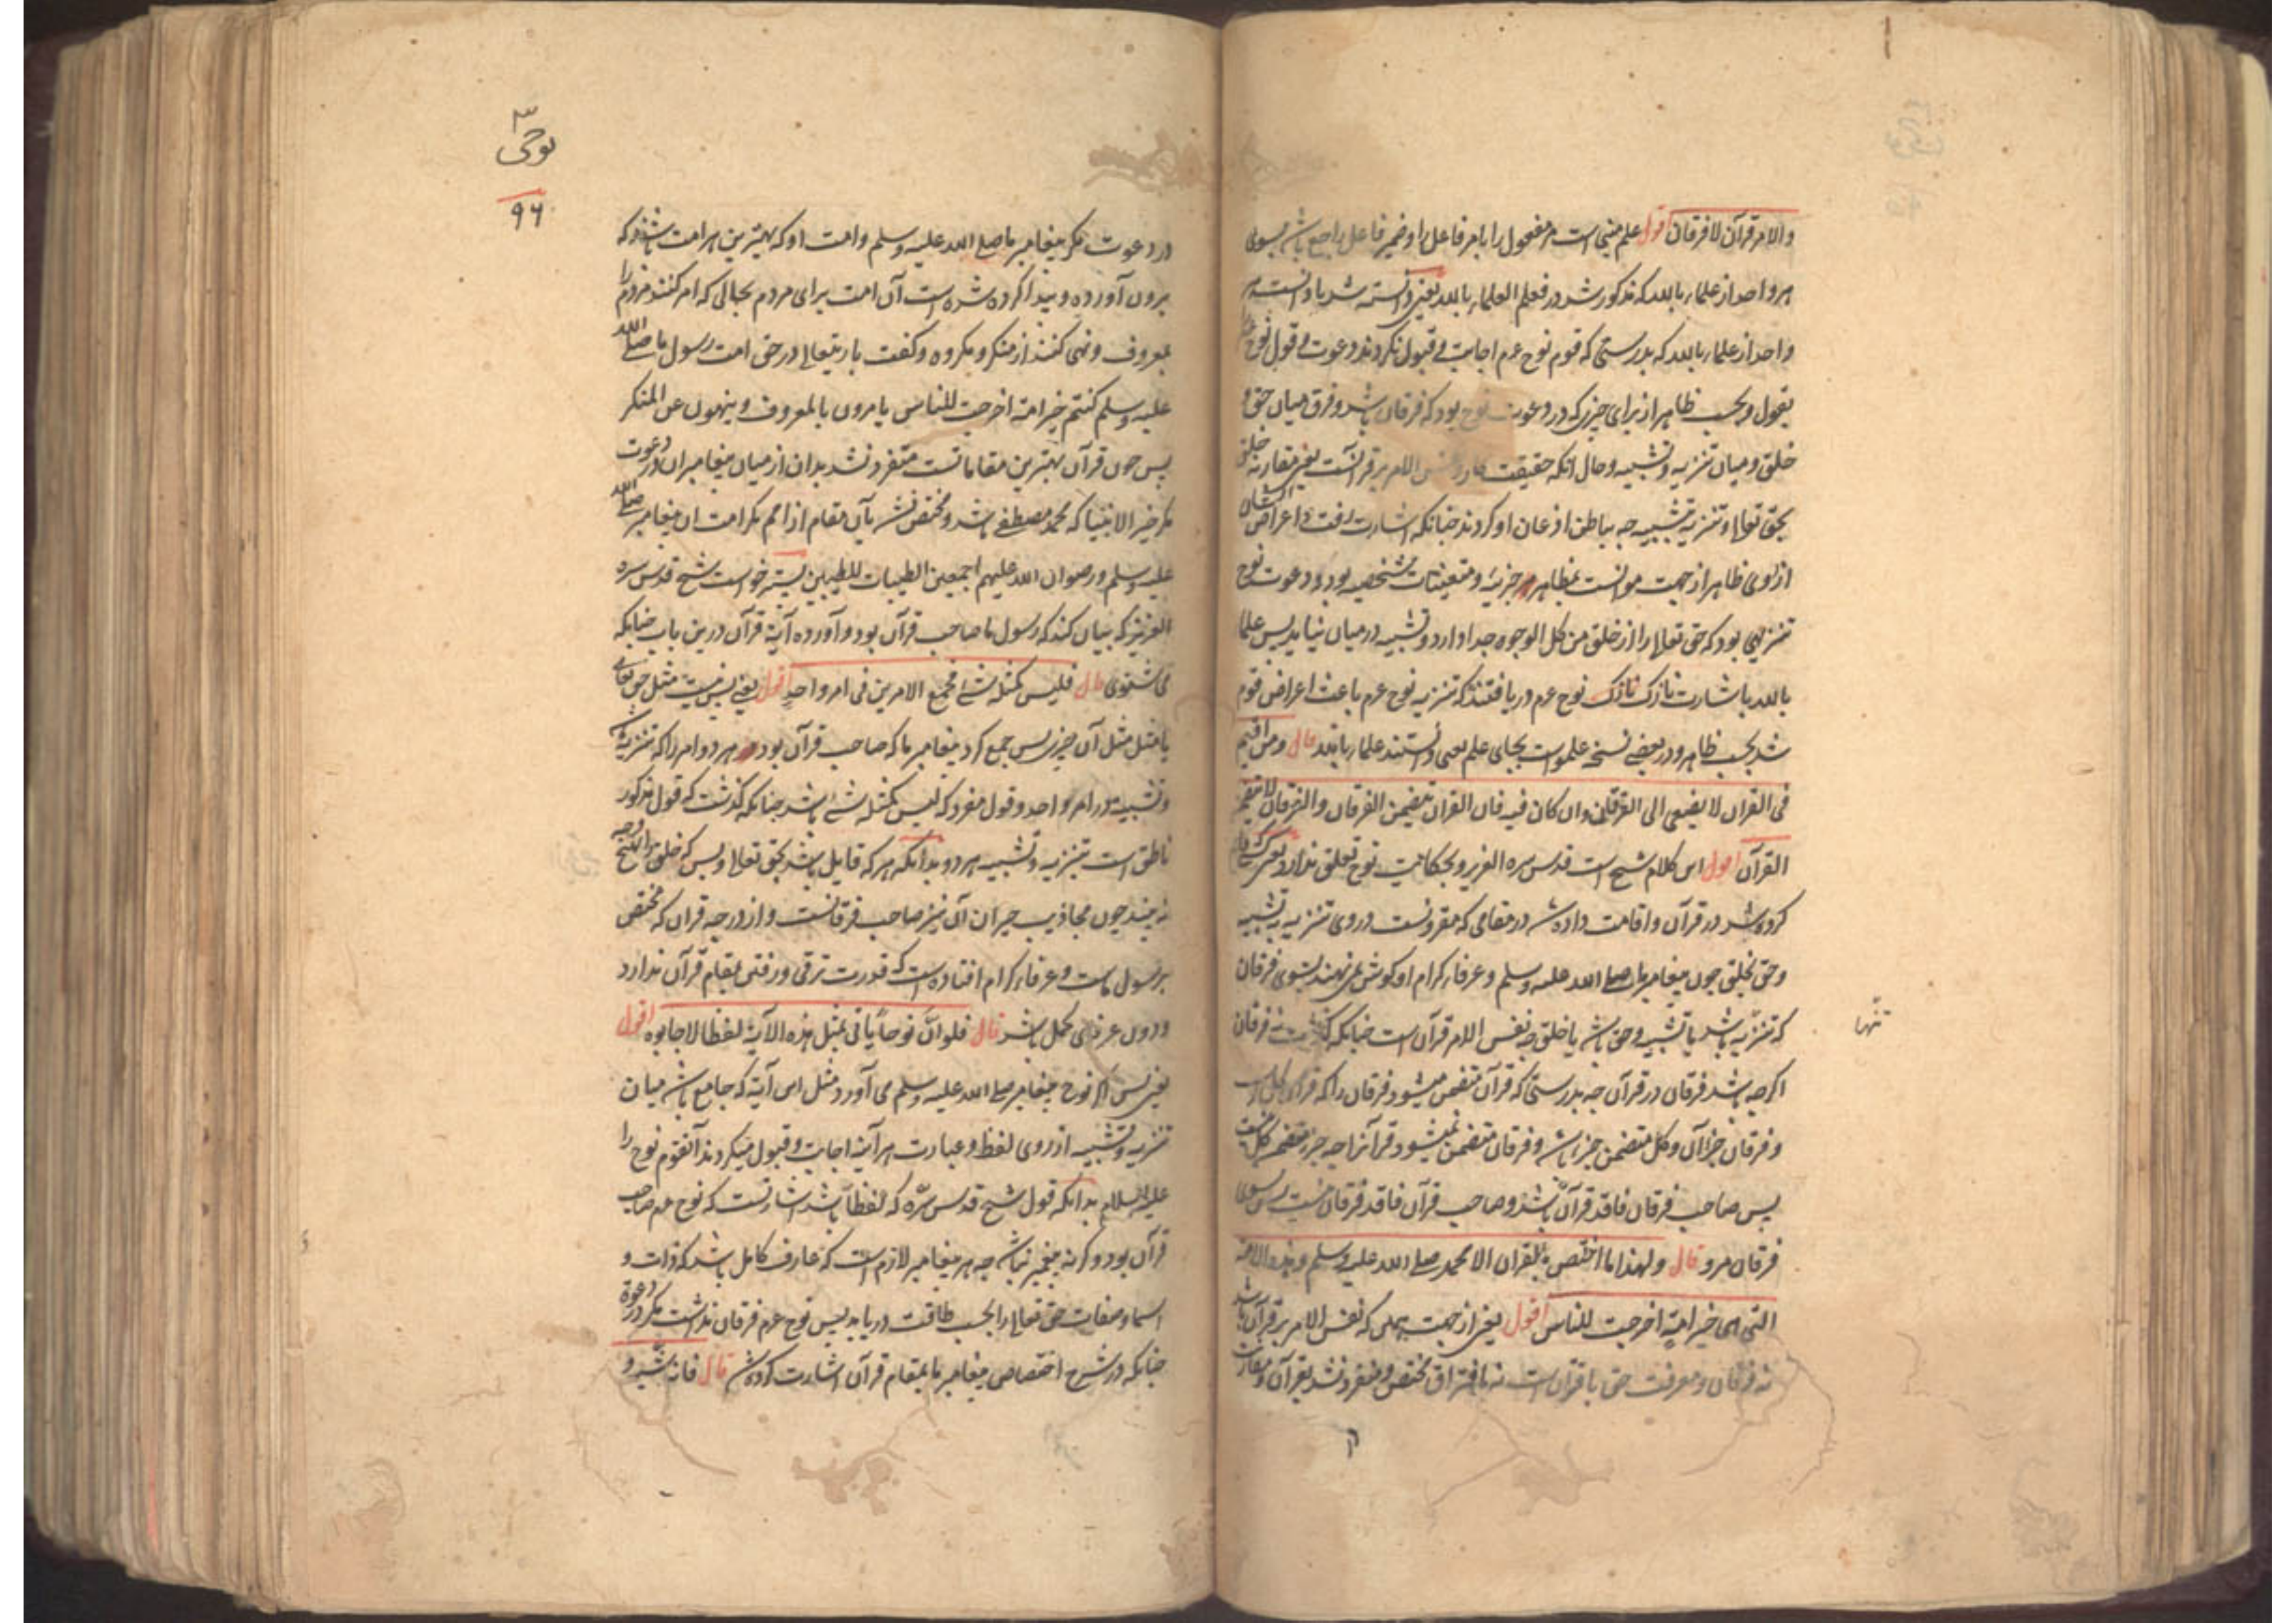 والامر قرآن لا فرقان اقول علم مبنی است مر مفعول را یا مر فاعل را و ضمیر فاعل راجع باشد بسوی
هر واحد از علماء بالله که مذکور شد در فعلم العلماء بالله یعنی دانسته شد یا دانست هر
واحد از علماء بالله که بدرستی که قوم نوح عم اجابت و قبول نکردند دعوت و قول نوح
بقول و بحسب ظاهر از برای چیزی که در دعوت نوح بود که فرقان باشد و فرق میان حق و
خلق و میان تنزیه و تشبیه و حال آنکه حقیقت کار و نفس الامر بر قرآنست یعنی مقارنه خلق
بحق تعالی و تنزیه بتشبیه چه بباطن اذعان او کردند چنانکه اشارت رفت و اعراض ایشان
از روی ظاهر از جهت موانست بمظاهر جزئیه و متعینات مشخصه بود و دعوت نوح
تنزیهی بود که حق تعالی را از خلق من کل الوجوه جدا دارد و تشبیه در میان نیاید پس علما
بالله باشارت نازک نازک نوح عم دریافتند که تنزیه نوح عم باعث اعراض قوم
شد بحسب ظاهر و در بعضی نسخه علموا است بجای علم یعنی دانستند علماء بالله قال ومن اقیم
فی القرآن لا یصغی الی الفرقان وان کان فیه فان القرآن یتضمن الفرقان والفرقان لا یتضمن
القرآن اقول این کلام شیخ است قدس سره العزیز و بحکایت نوح تعلق ندارد یعنی کسی که قایم
کرده شد در قرآن و اقامت داده شد در مقامی که مقرونست در وی تنزیه به تشبیه
و حق بخلق چون پیغامبر ما صلی الله علیه وسلم و عرفاء کرام او گوش نمی نهند بسوی فرقان
که تنزیه باشد یا تشبیه و حق باشد یا خلق چه نفس الامر قرآن است چنانکه گذشت نه فرقان
تنها
اگرچه باشد فرقان در قرآن چه بدرستی که قرآن متضمن میشود فرقان را که قرآن کل است
و فرقان جزء آن و کل متضمن جزء باشد و فرقان متضمن نمیشود قرآنرا چه جزء متضمن کل نیست
پس صاحب فرقان فاقد قرآن باشد و صاحب قرآن فاقد فرقان نیست پس بسوی
فرقان مرو قال ولهذا ما اختص بالقرآن الا محمد صلی الله علیه وسلم وهذه الامة
التی هی خیر امة اخرجت للناس اقول یعنی از جهت همین که نفس الامر بر قرآن باشد
نه فرقان و معرفت حق با قرآن است نه بافتراق مختص و منفرد نشد بقرآن و مقارنت
نوحی
۹۶
در دعوت مگر پیغامبر ما صلی الله علیه وسلم و امت او که بهترین هر امت باشند که
برون آورده و پیدا کرده شده است آن امت برای مردم بحالی که امر کنند مردم را
بمعروف و نهی کنند از منکر و مکروه و گفت باریتعالی در حق امت رسول ما صلی الله
علیه وسلم کنتم خیر امة اخرجت للناس یامرون بالمعروف وینهون عن المنکر
پس چون قرآن بهترین مقاماتست متفرد نشد بدان از میان پیغامبران در دعوت
مگر خیر الانبیا که محمد مصطفی باشد و مختص نشد بآن مقام از امم مگر امت آن پیغامبر صلی الله
علیه وسلم ورضوان الله علیهم اجمعین الطیبات للطیبین پستر خواست شیخ قدس سره
العزیز که بیان کند که رسول ما صاحب قرآن بود و آورده آیة قرآن درین باب چنانکه
می شنوی قال فلیس کمثله شیء فجمع الامرین فی امر واحد اقول یعنی پس نیست مثل حق تعالی
یا مثل مثل آن چیزی پس جمع کرد پیغامبر ما که صاحب قرآن بود هر دو امر را که تنزیه باشد
و تشبیه در امر واحد و قول مفرد که لیس کمثله شیء باشد چنانکه گذشت که قول مذکور
ناطق است بتنزیه و تشبیه هر دو بدانکه هر که قایل باشد بحق تعالی و بس که خلق را هیچ وجه
نه بیند چون مجاذیب حیران آن نیز صاحب فرقانست و از درجه قرآن که مختص
برسول ماست و عرفاء کرام افتاده است که قدرت ترقی و رفتن بمقام قرآن ندارد
ودون عرفای کمل باشد قال فلو ان نوحا یاتی بمثل هذه الآیة لفظا لاجابوه اقول
یعنی پس اگر نوح پیغامبر صلی الله علیه وسلم می آورد مثل این آیة که جامع باشد میان
تنزیه و تشبیه از روی لفظ و عبارت هرآینه اجابت و قبول میکردند آنقوم نوح را
علیه السلام بدانکه قول شیخ قدس سره که لفظا باشد اشارتست که نوح عم صاحب
قرآن بود و گرنه پیغمبر نباشد چه هر پیغامبر لازم است که عارف کامل باشد که ذات و
اسما و صفات حق تعالی را بحسب طاقت دریابد پس نوح عم فرقان نداشت مگر در دعوة
چنانکه در شرح اختصاص پیغامبر ما بمقام قرآن اشارت کرده شد قال فانه شبه و